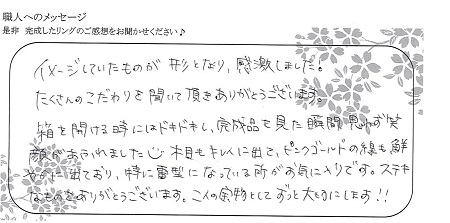 職人へのメッセージ
是非 完成したリングのご感想をお聞かせください♪
イメージしていたものが 形となり、感激しました!
たくさんのこだわりを聞いて頂きありがとうございます。
箱を開ける時にはドキドキし、完成品を見た瞬間思わず笑
顔があふれました☺ 木目もキレイに出て、ピンクゴールドの線も鮮
やかに出ており、特に雷型になっている所がお気に入りです。ステキ
なものをありがとうございます。二人の宝物としてずっと大切にします!!